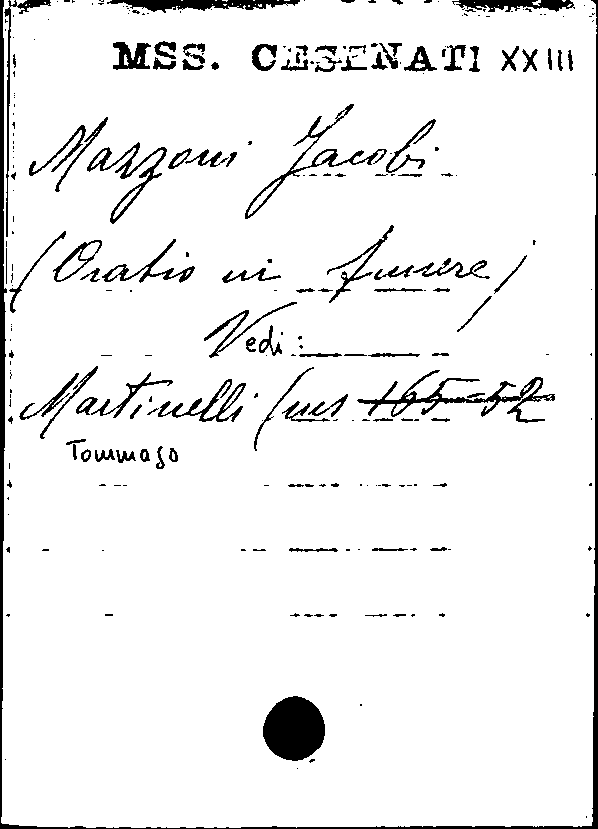 MSS. CESENATI XXIII
Mazzoni Jacobi
(Oratio in funere)
Vedi:
Martinelli (ms 165-52
Tommaso